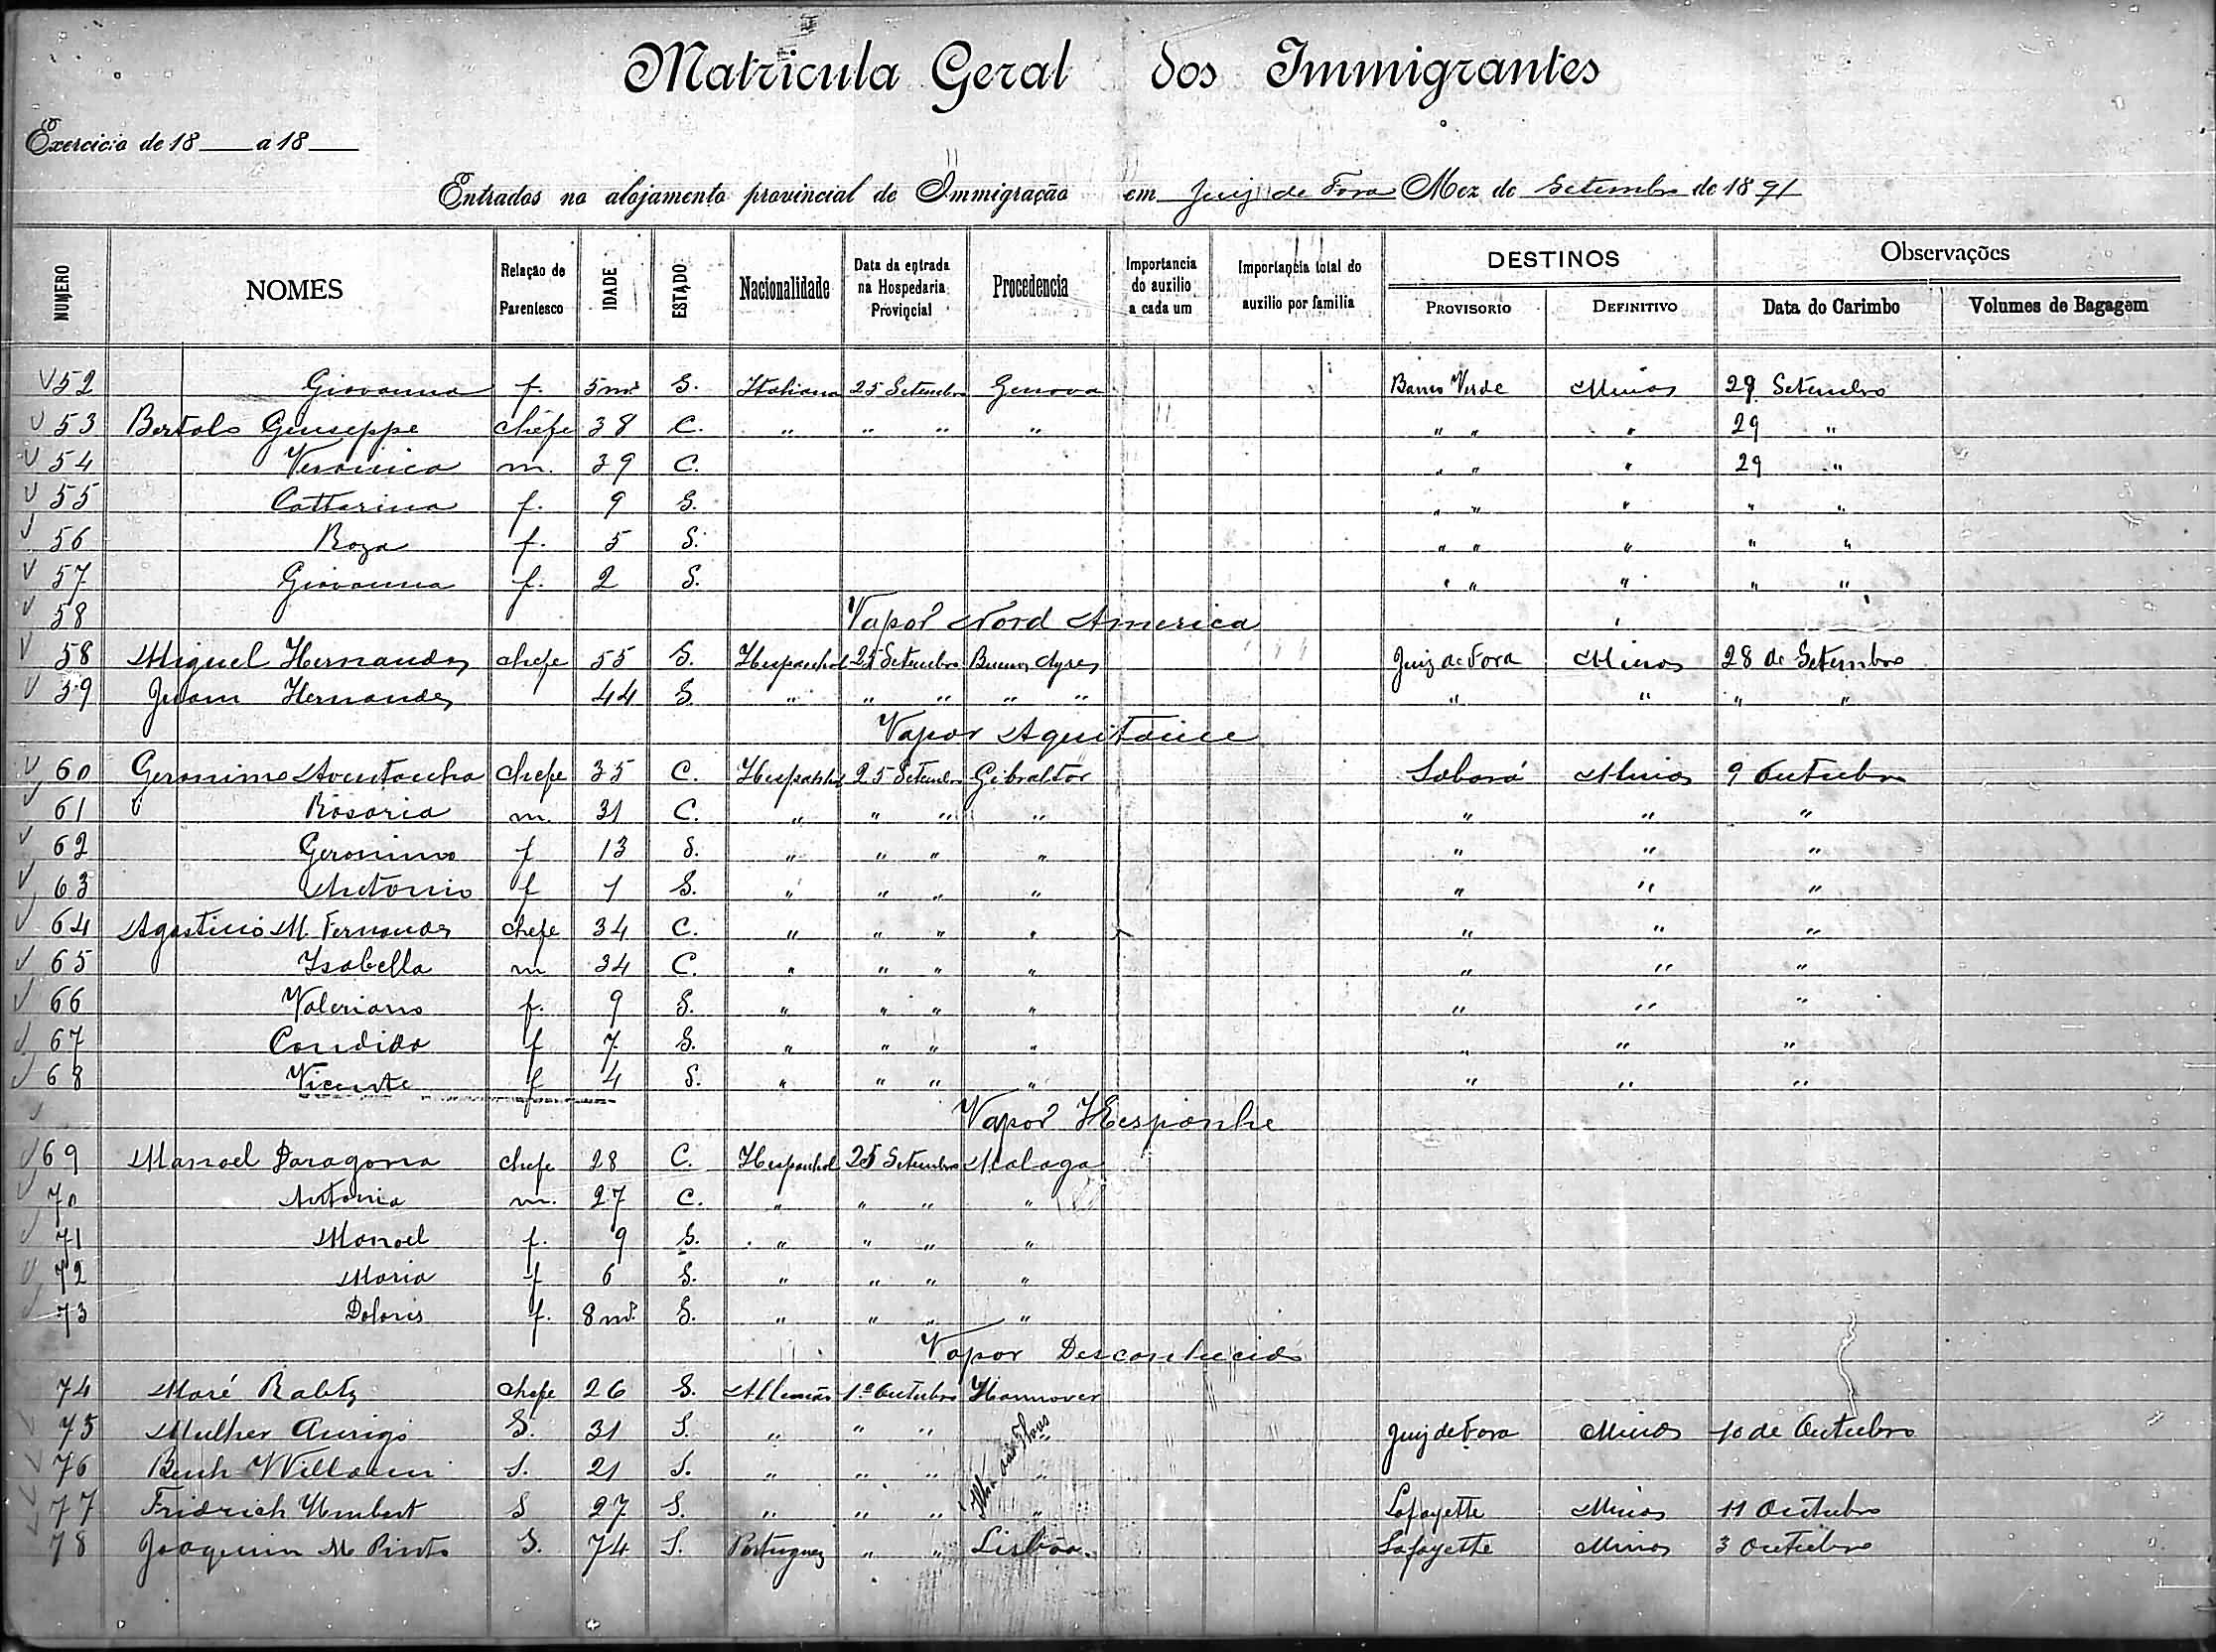 Matricula Geral dos Immigrantes
Exercicio de 18 a 18
Entrados no alojamento provincial de Immigração em Juiz de Fora Mez de Setembro de 1891
NUMERO NOMES Relação de Parentesco IDADE ESTADO Nacionalidade Data da entrada na Hospedaria Provincial Procedencia Importancia do auxilio a cada um Importancia total do auxilio por familia DESTINOS PROVISORIO DEFINITIVO Observações Data do Carimbo Volumes de Bagagem
52 Giovanna f. 5 mz S. Italiana 25 Setembro Genova Barro Verde Minas 29 Setembro
53 Bertolo Giuseppe chefe 38 C. " " " " " " " 29 "
54 Veronica m. 39 C. " " " 29 "
55 Catterina f. 9 S. " " " " "
56 Roza f. 5 S. " " " " "
57 Giovanna f. 2 S. " " " " "
58 Vapor Nord America
58 Miguel Hernandez chefe 55 S. Hespanhol 25 Setembro Buenos Ayres Juiz de Fora Minas 28 de Setembro
59 Juam Hernandez 44 S. " " " " " " " " "
Vapor Aquitaine
60 Geronimo chefe 35 C. Hespanhol 25 Setembro Gibraltar Sabará Minas 9 Outubro
61 Rosaria m. 31 C. " " " " " " "
62 Geronimo f 13 S. " " " " " " "
63 Antonio f 1 S. " " " " " " "
64 Agostino M. Fernandes chefe 34 C. " " " " " " "
65 Isabella m 34 C. " " " " " " "
66 Valeriano f. 9 S. " " " " " " "
67 Candida f 7 S. " " " " " " "
68 Vicente f 4 S. " " " " " " "
Vapor Hespanhe
69 Manoel Paragona chefe 28 C. Hespanhol 25 Setembro Malaga
70 Antonia m. 27 C. " " " "
71 Manoel f. 9 S. " " " "
72 Maria f 6 S. " " " "
73 Doloris f. 8 mz S. " " " "
Vapor Desconhecido
74 Maré Rabtz chefe 26 S. Allemão 1º Outubro Hannover
75 Mulher Aurigo S. 31 S. " " " " Juiz de Fora Minas 10 de Outubro
76 Willaem S. 21 S. " " " "
Ilha das Flores
77 Fridrich Umbert S 27 S. " " " " Lafayette Minas 11 Outubro
78 Joaquim M Pinto S. 74 S. Portuguez " " Lisbôa. Lafayette Minas 3 Outubro